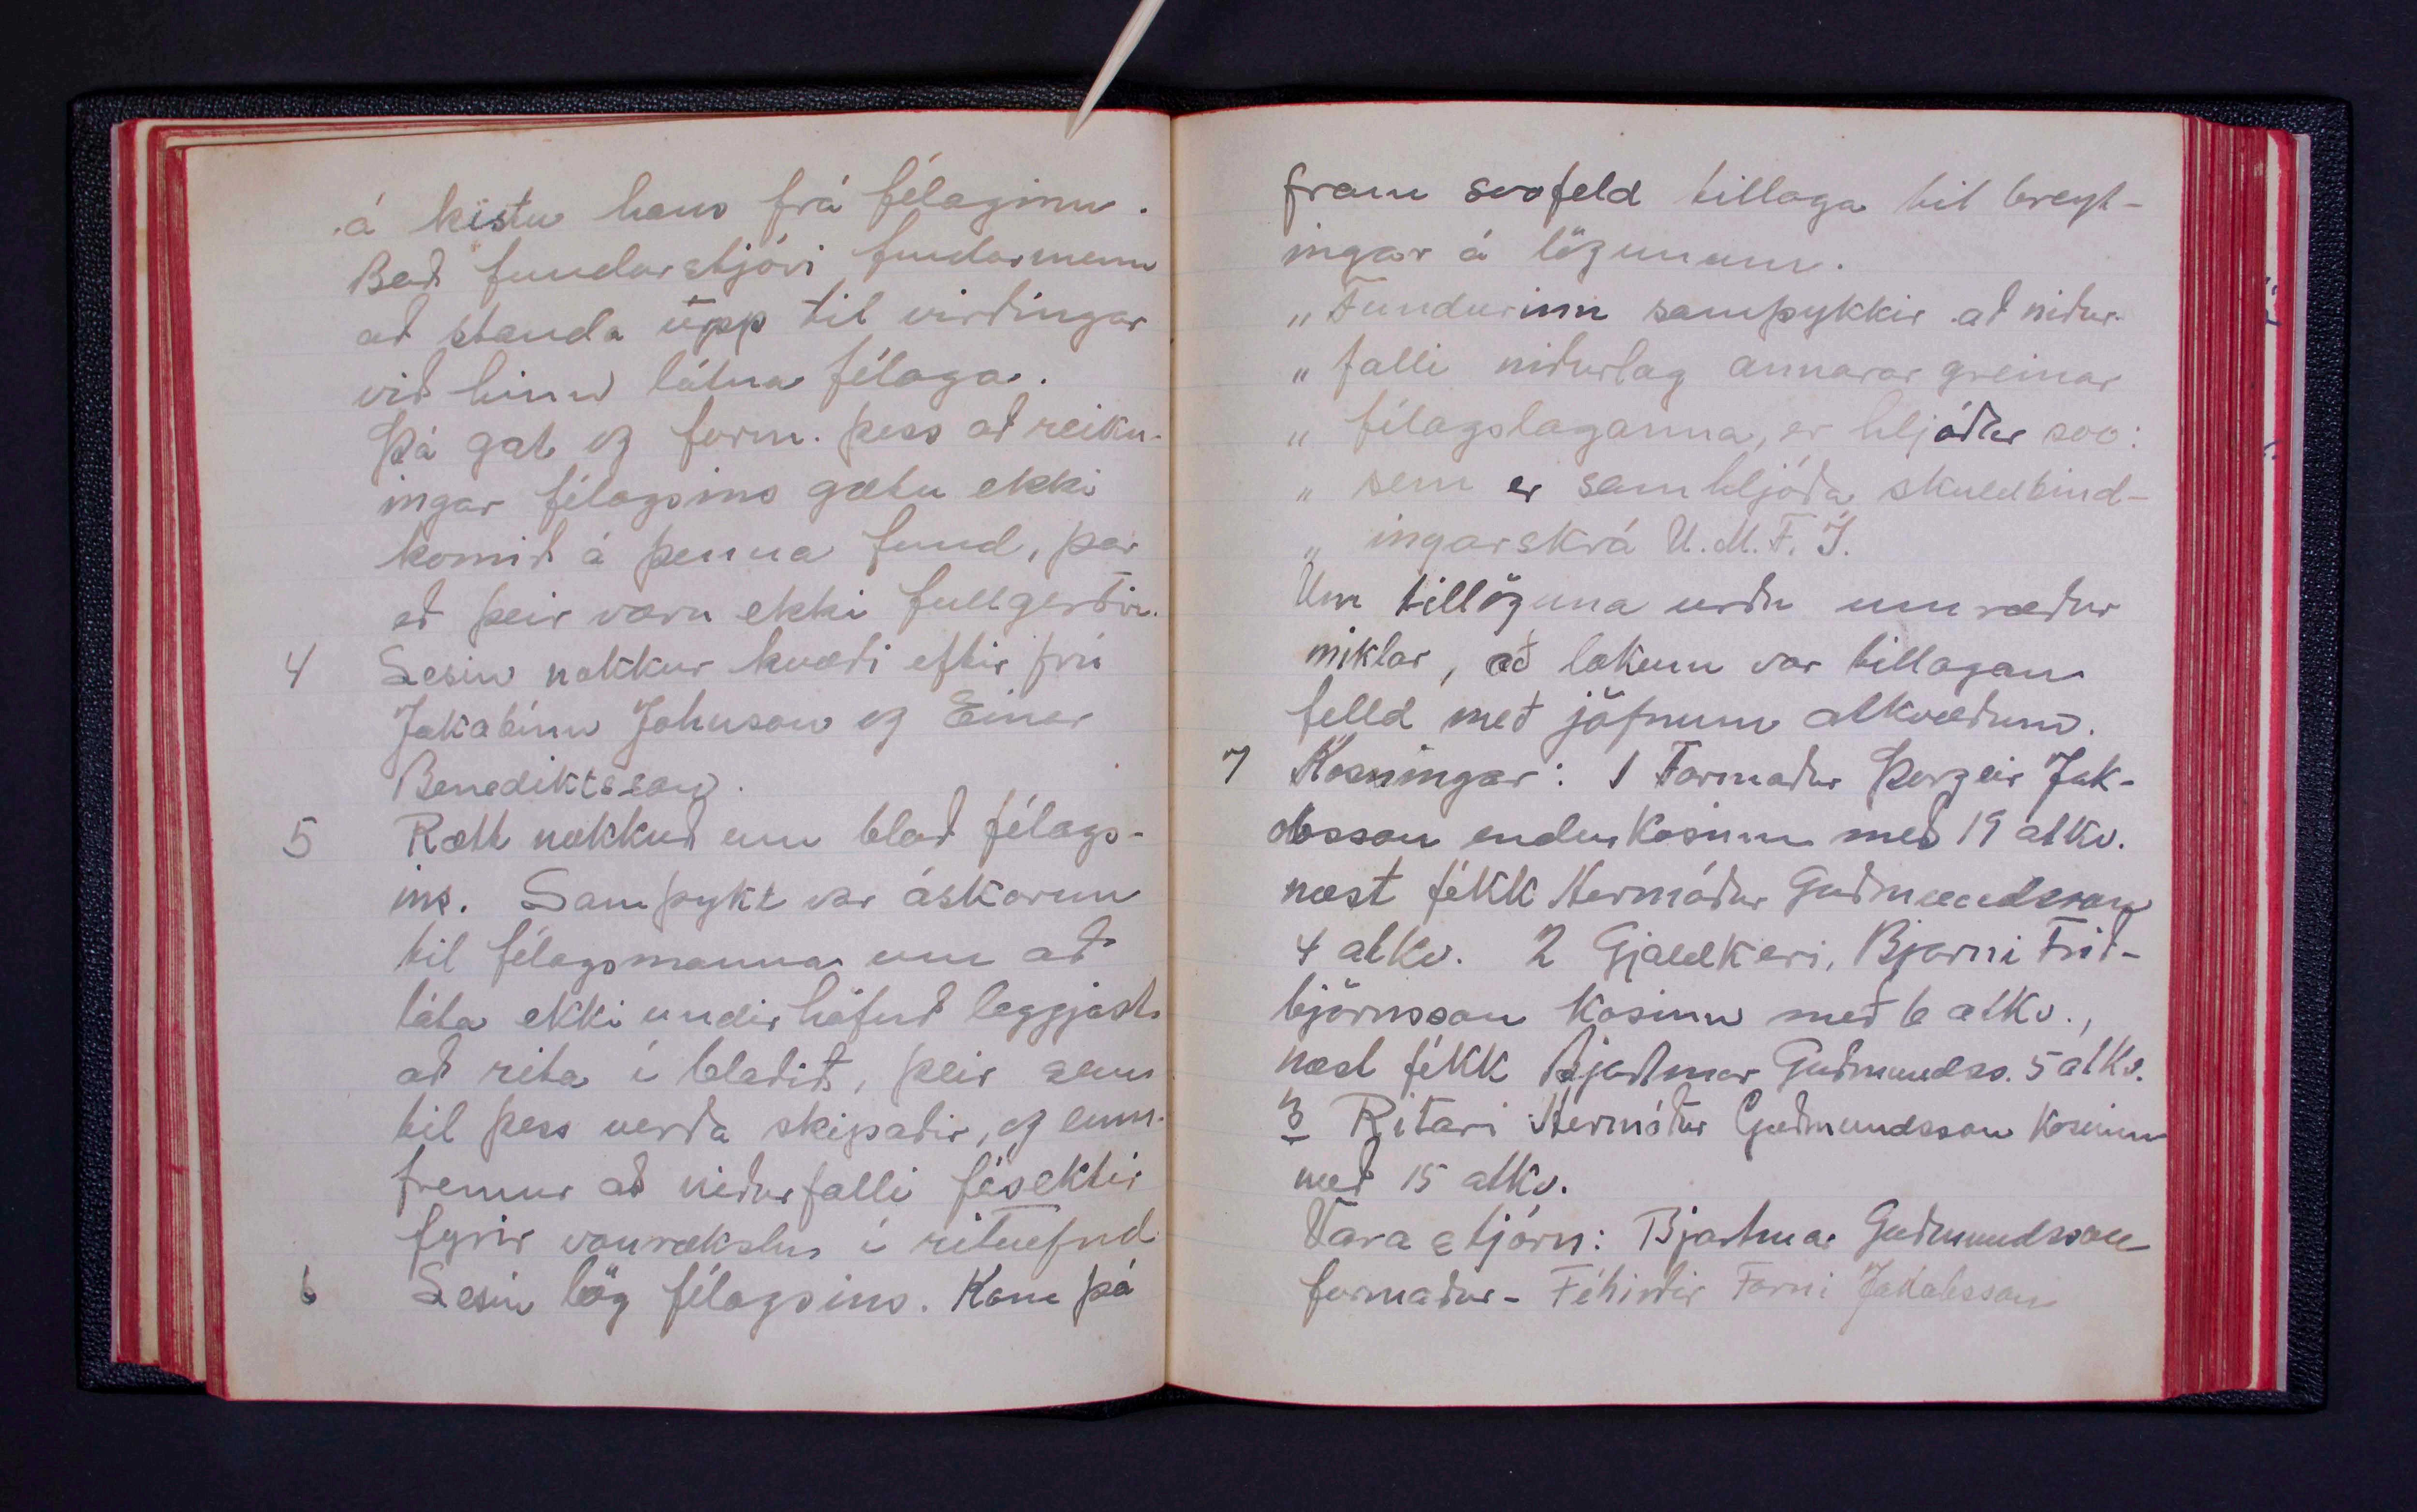 á kistu hans frá félaginu.
Bað fundarstjóri fundarmenn
að standa upp til virðingar
við hinn látna félaga.
Þá gat og form. þess að reikn-
ingar félagsins gætu ekki
komið á þenna fund, þar
eð þeir væru ekki fullgerðir.
4 Lesin nokkur kvæði eftir frú
Jakobínu Johnson og Einar
Benediktsson.
5 Rætt nokkuð um blað félags-
ins. Samþykt var áskorun
til félagsmanna um að
láta ekki undir höfuð leggjast
að rita í blaðið, þeir sem
til þess verða skipaðir, og enn-
fremur að niðurfalli fésektir
fyrir vanrækslu í ritnefnd
6 Lesin lög félagsins. Kom þá
fram svofeld tillaga til breyt-
ingar á lögunum.
„Fundurinn samþykkir að niður-
„ falli niðurlag annarar greinar
„ félagslaganna, er hljóðar svo:
„ sem er samhljóða skuldbind-
„ ingarskrá U.M.F.Í.
Um tillöguna urðu umræður
miklar, að lokum var tillagan
felld með jöfnum atkvæðum.
7 Kosningar: 1 Formaður Þorgeir Jak-
obsson endurkosinn með 19 atkv.
næst fékk Hermóður Guðmundsson
4 atkv. 2 Gjaldkeri, Bjarni Frið-
björnsson kosinn með 6 atkv.,
næst fékk Bjartmar Guðmundss. 5 atkv.
3 Ritari Hermóður Guðmundsson kosinn
með 15 atkv.
Vara stjórn: Bjartmar Guðmundsson
formaður - Féhirðir Forni Jakobsson